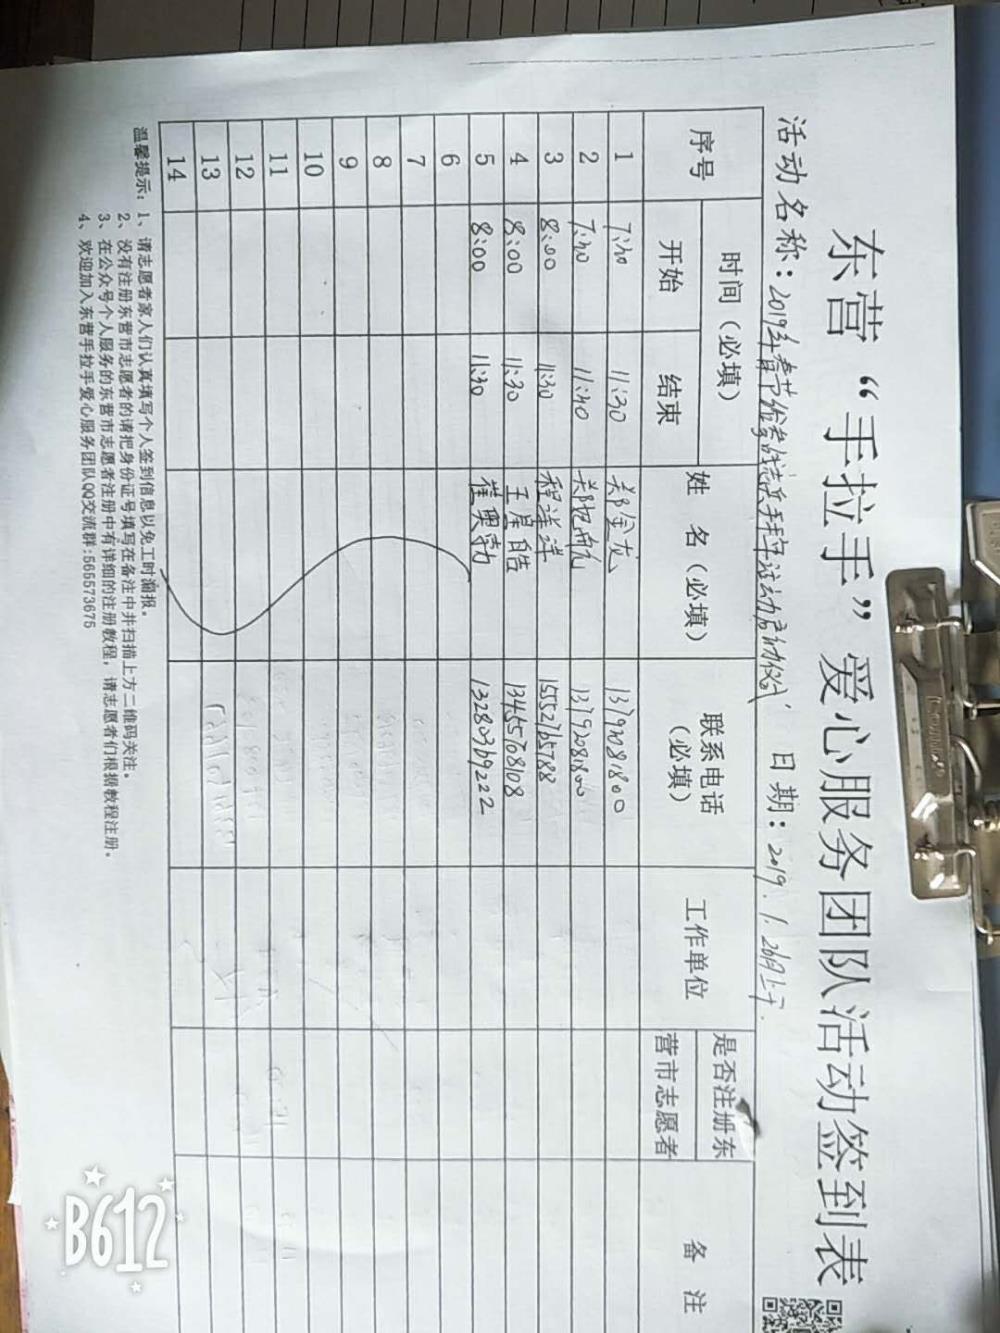 东营“手拉手”爱心服务团队活动签到表
活动名称：2019年春节 活动启动仪式 日期：2019.1.26日上午.
序号 时间（必填） 姓 名（必填） 联系电话（必填） 工作单位 是否注册东营市志愿者 备 注
开始 结束
1 7:30 11:30 郑金龙 13792081800
2 7:30 11:30 13792081800
3 8:00 11:30 程洋洋 15552765788
4 8:00 11:30 王岸皓 13455708108
5 8:00 11:30 崔奥勃 13280369222
6
7
8
9
10
11
12
13
14
温馨提示：1、请志愿者家人们认真填写个人签到信息以免工时漏报。
2、没有注册东营市志愿者的请把身份证号填写在备注中并扫描上方二维码关注。
3、在公众号个人服务的东营市志愿者注册中有详细的注册教程，请志愿者们根据教程注册。
4、欢迎加入东营手拉手爱心服务团队QQ交流群:565573675
B612